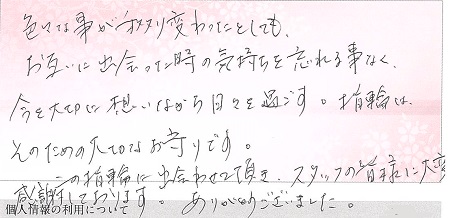 色々な事が移り変わったとしても、
お互いに出会った時の気持ちを忘れる事なく、
今を大切に想いながら日々を過ごす。指輪は、
そのための大切なお守りです。
この指輪に出会わせて頂き、スタッフの皆様に大変
感謝しております。ありがとうございました。
個人情報の利用について